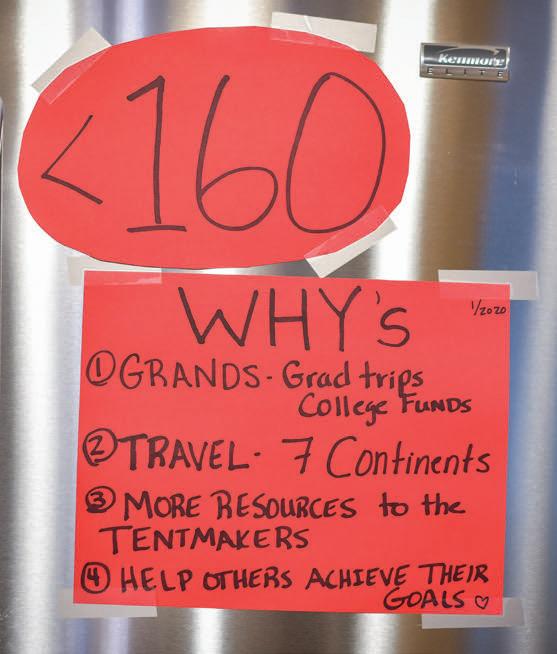 Kenmore
ELITE
<160
WHY's
1/2020
① GRANDS - Grad trips
College FUNDS
② TRAVEL - 7 Continents
③ MORE RESOURCES to the
TENTMAKERS
④ HELP OTHERS ACHIEVE THEIR
GOALS ♡